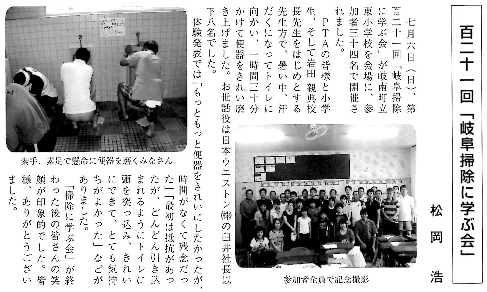 百二十一回「岐阜掃除に学ぶ会」
松岡 浩
七月六日(日)、第
百二十一回「岐阜掃除
に学ぶ会」が岐南町立
東小学校を会場に、参
加者三十四名で開催さ
れました。
PTAの皆様と小学
生、そして岩田親典校
長先生をはじめとする
先生方で、暑い中、汗
だくになってトイレに
向かい、一時間三十分
かけて便器をきれい磨
き上げました。お世話役は日本ウエストン㈱の臼井社長以
下八名でした。
体験発表では「もっともっと便器をきれいにしたかったが、
時間がなくて残念だっ
た」「最初は抵抗があっ
たが、どんどん引き込
まれるようにトイレに
頭を突っ込み、きれい
にできて、とても気持
ちがよかった」などが
ありました。
「掃除に学ぶ会」が終
わった後の皆さんの笑
顔が印象的でした。皆
様、ありがとうござい
ました。
素手、素足で懸命に便器を磨くみなさん
参加者全員で記念撮影